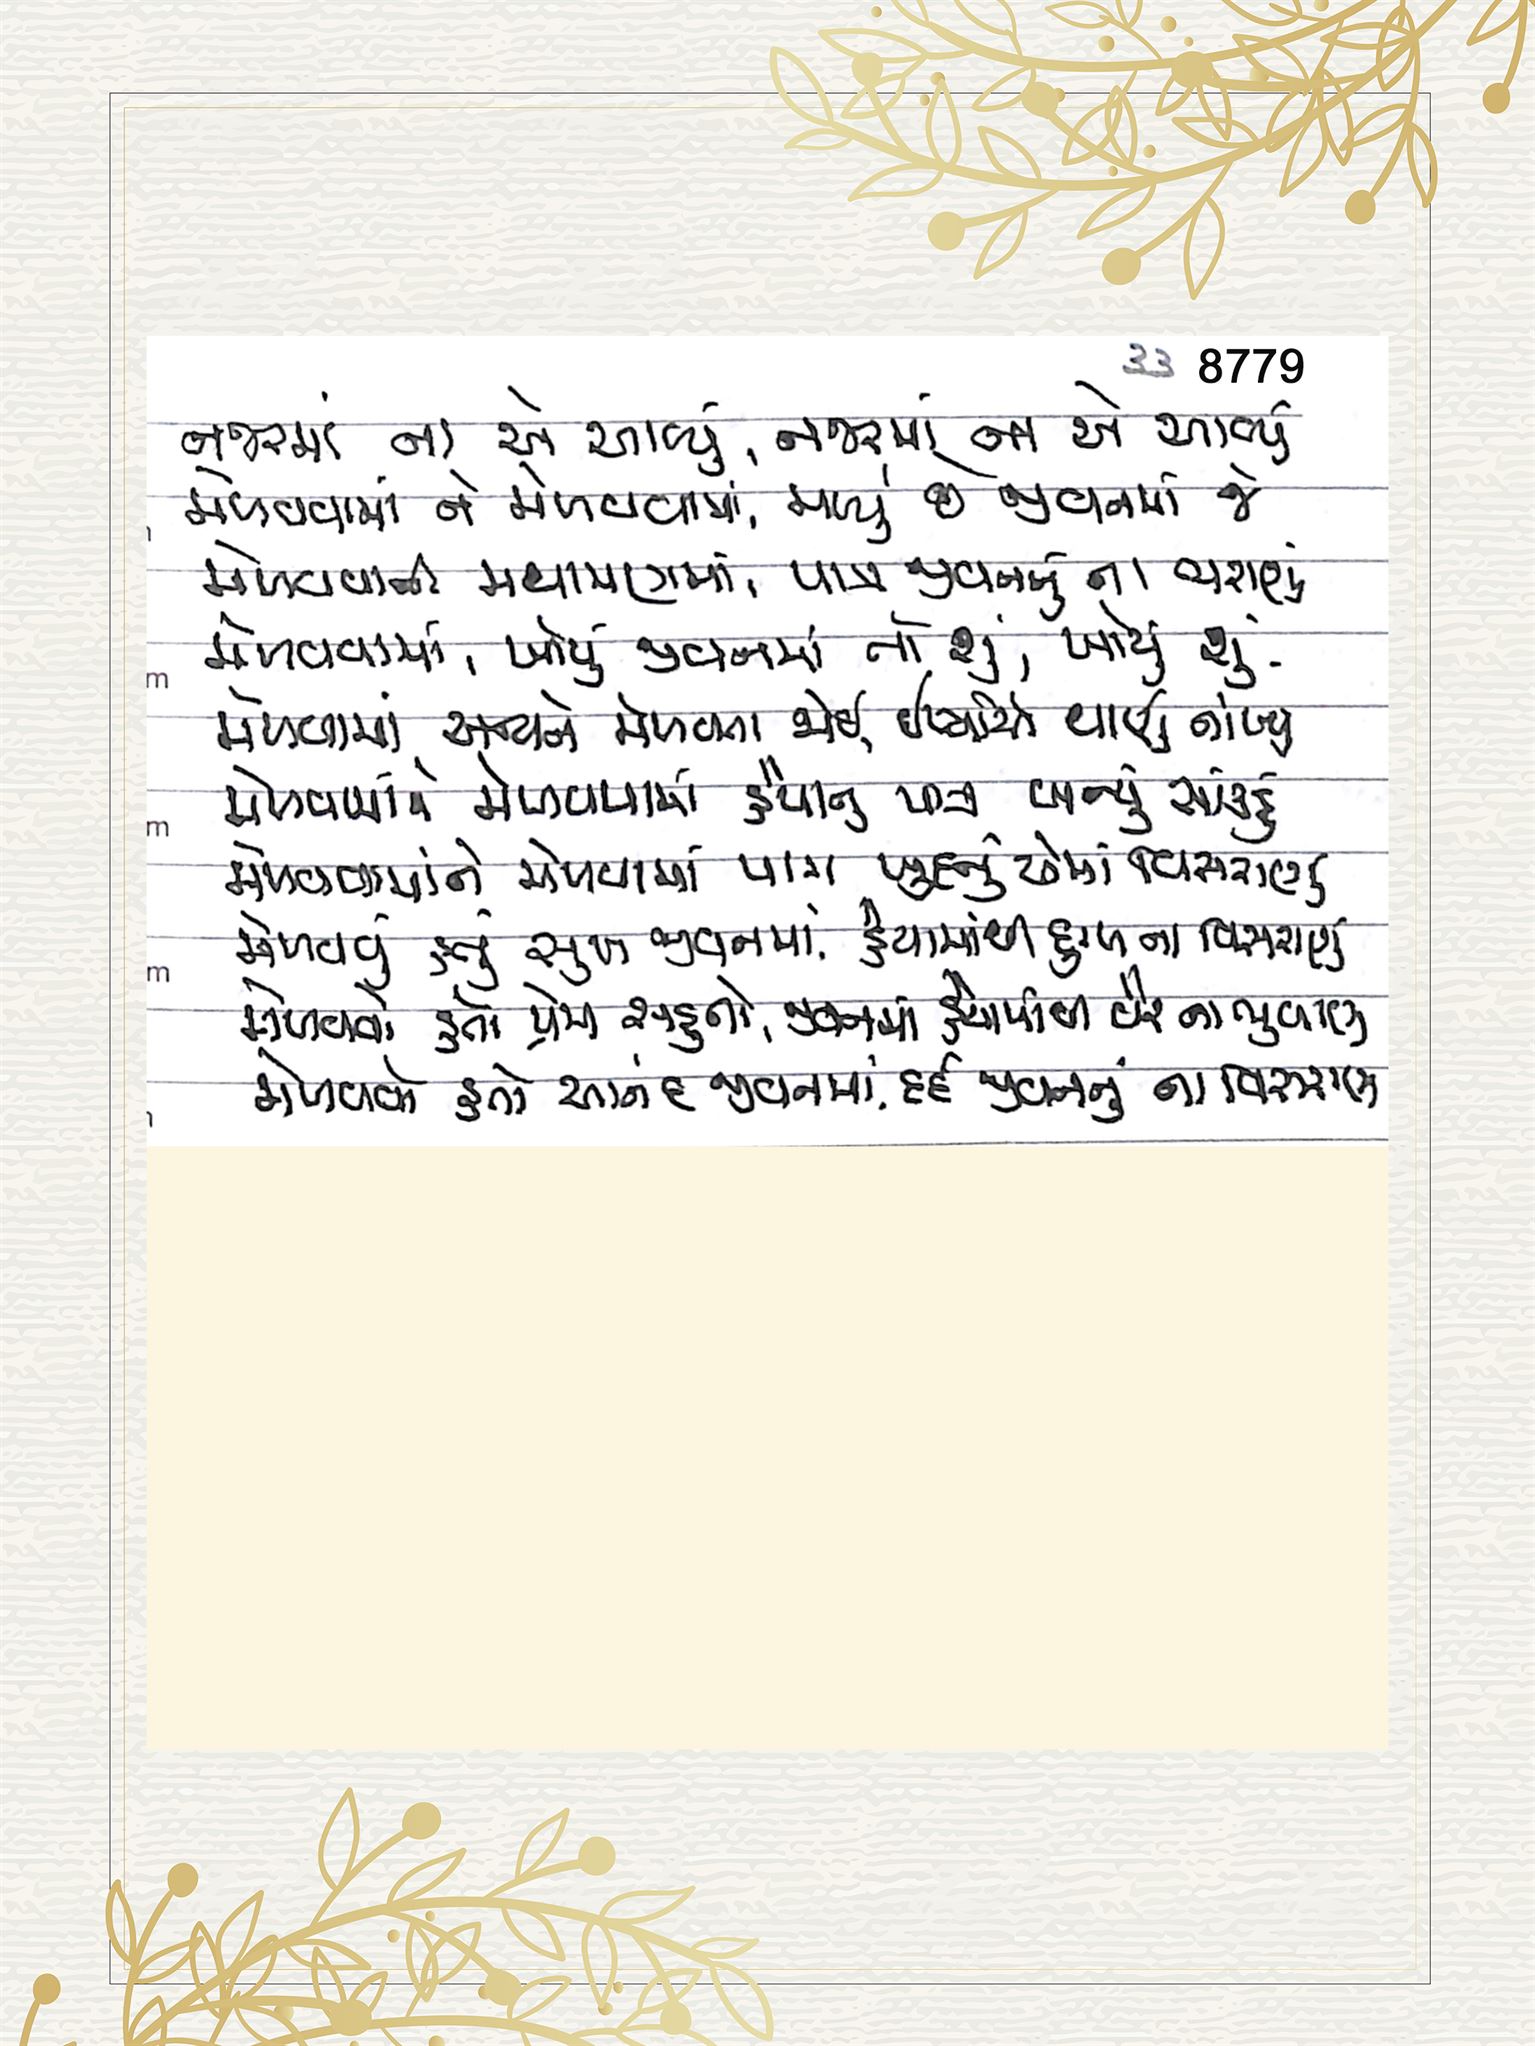 33 8779
નજરમાં ના એ આવ્યું, નજરમાં ના એ આવ્યું
મેળવવામાં ને મેળવવામાં, મળ્યું છે જીવનમાં જે
મેળવવાની મથામણમાં, પાત્ર જીવનનું ના ભરાણું
મેળવવામાં, ખોયું જીવનમાં તો શું, ખોયું શું.
મેળવામાં, અન્યને મેળવતા જોઈ, ઈર્ષ્યાએ બાળી નાંખ્યુ
મેળવવામાંને મેળવવામાં હૈયાનુ પાત્ર બન્યું સાંકડું
મેળવવામાંને મેળવવામાં પાત્ર ખુદનું એમાં વિસરાણું
મેળવવું હતું સુખ જીવનમાં, હૈયામાંથી દુઃખ ના વિસરાણું
મેળવવો હતો પ્રેમ સહુનો, જીવનમાં હૈયામાંથી વૈર ના ભુલાણુ
મેળવવો હતો આનંદ જીવનમાં, દર્દ જીવનનું ના વિસરાણુ